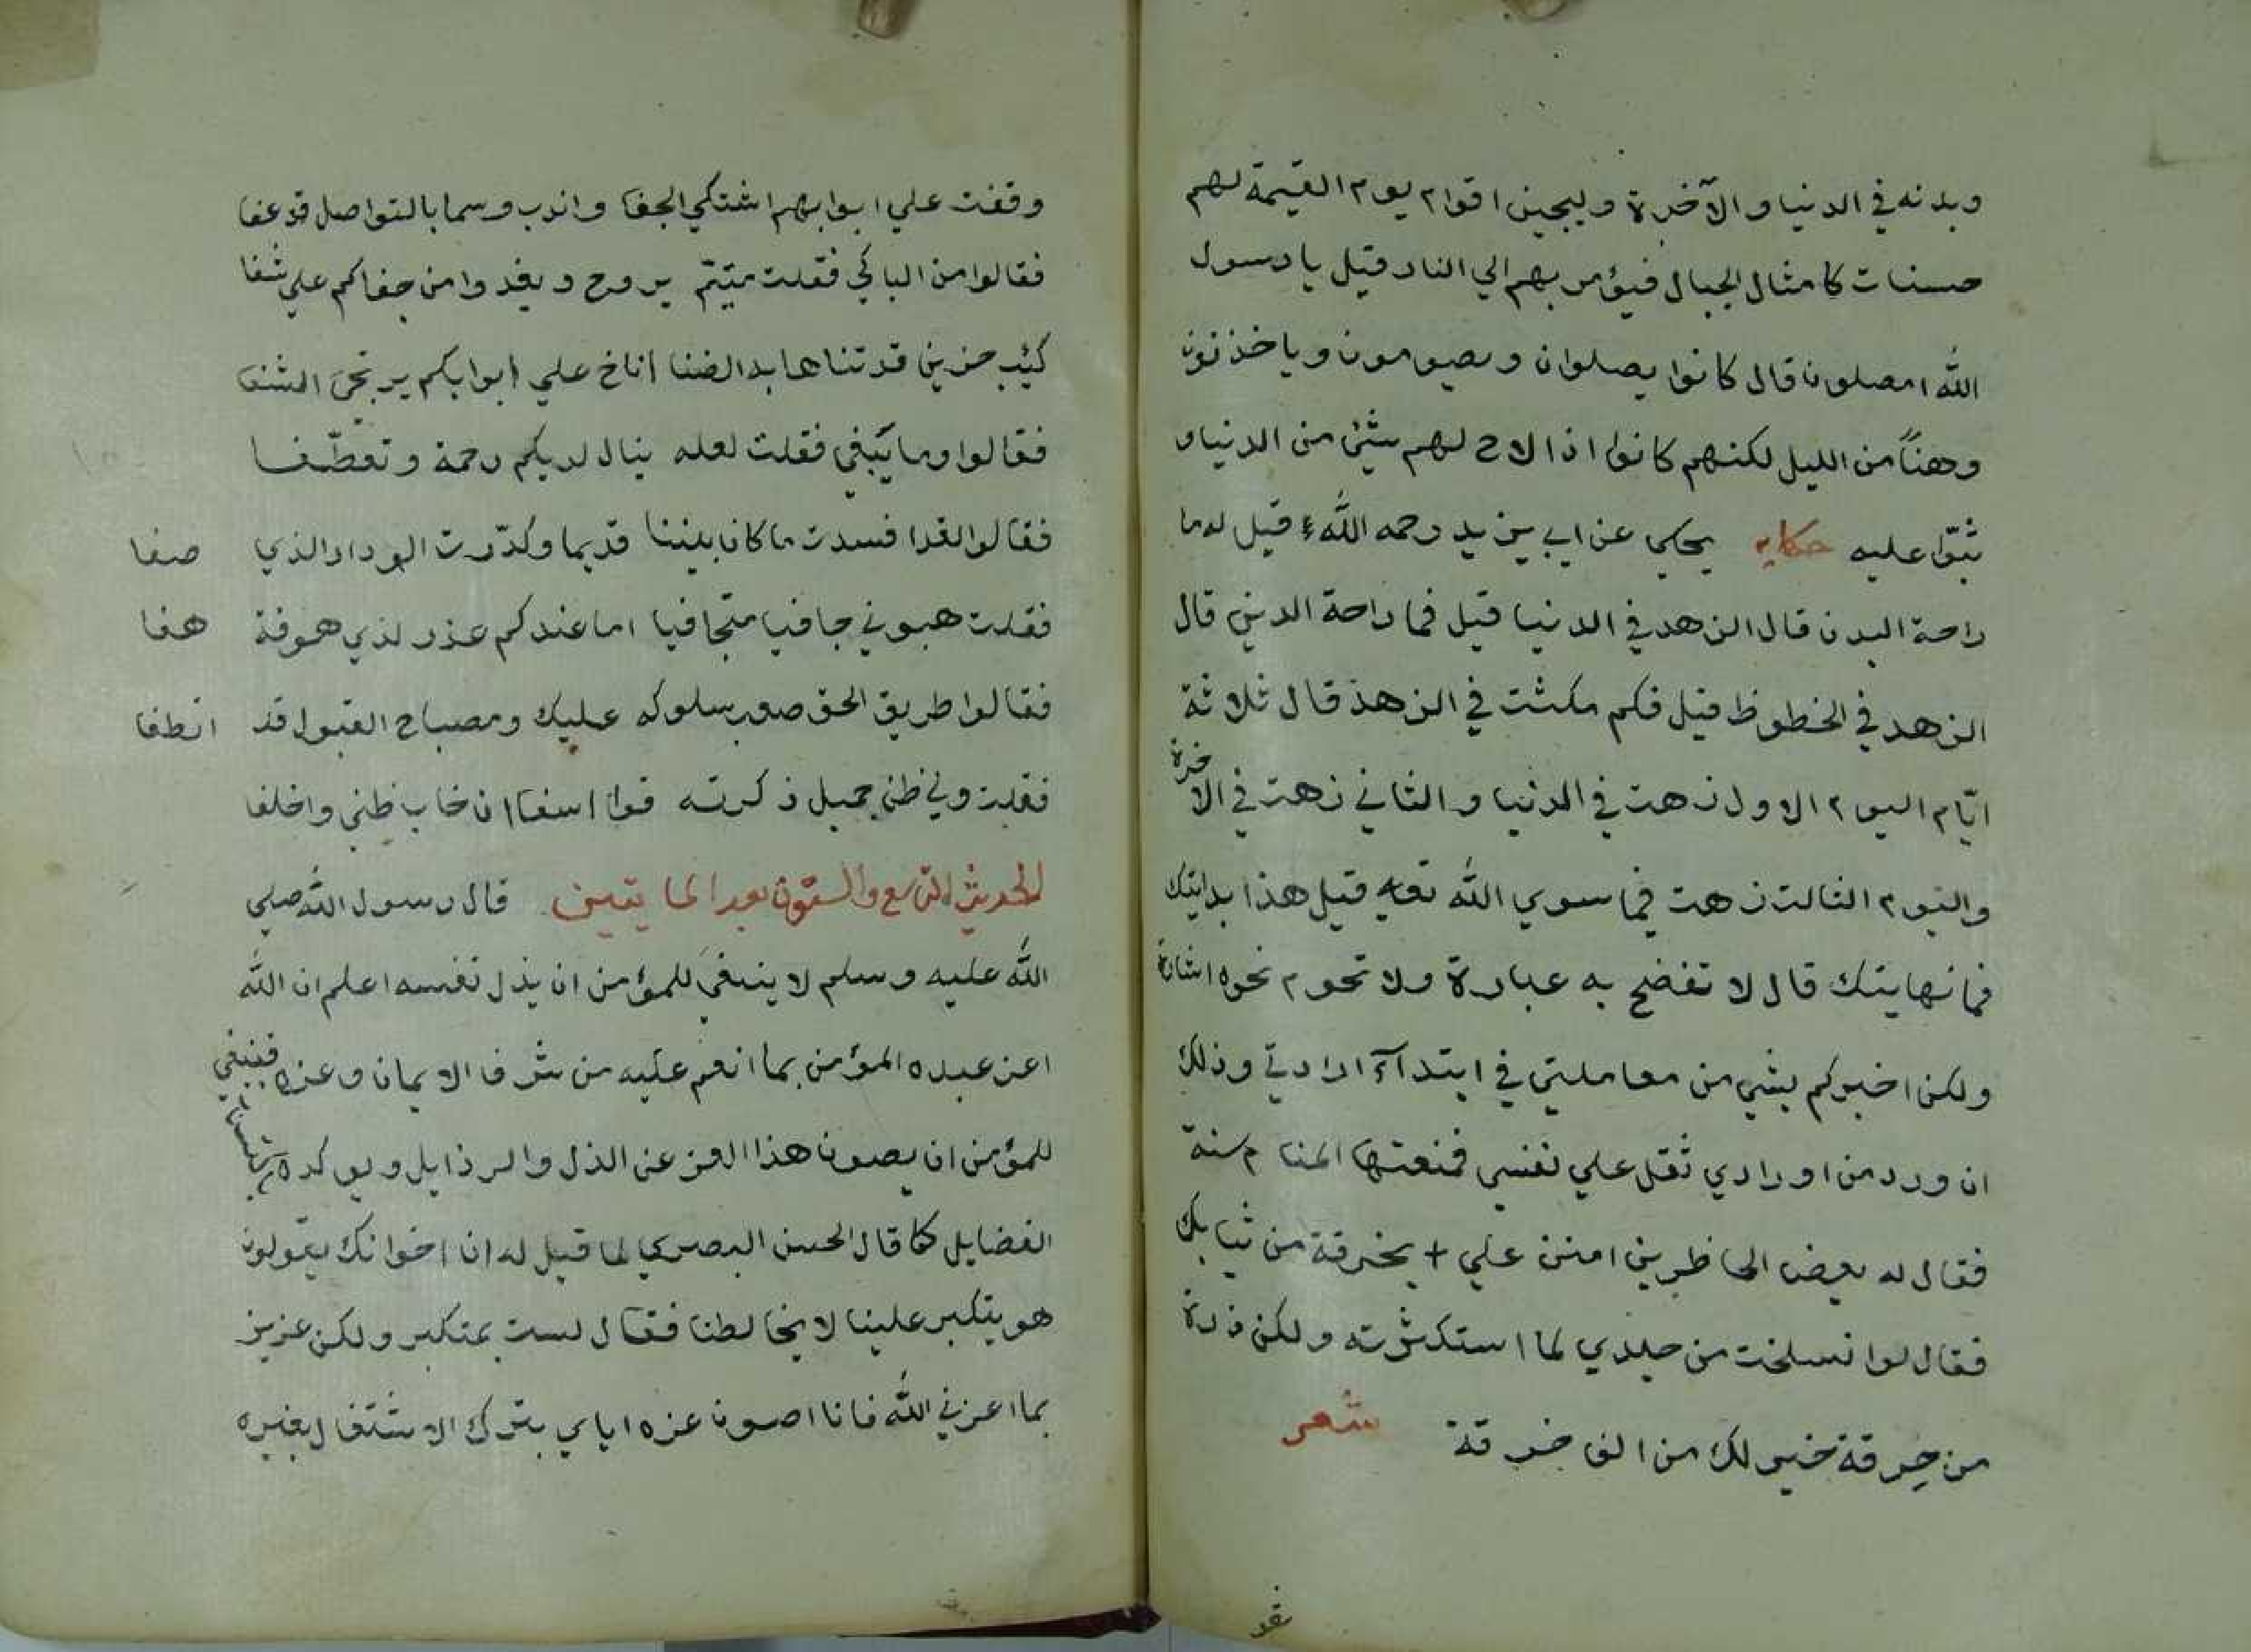 وبدنه في الدنيا والآخرة وليجين اقوام يوم القيمة لهم
حسنات كامثال الجبال فيؤمر بهم الي النار قيل يا رسول
الله امصلون قال كانوا يصلوان ويصومون وياخذون
وهناً من الليل لكنهم كانوا اذا لاح لهم شئ من الدنيا و
ثبوّا عليه حكايه يحكي عن ابي يزيد رحمه الله قيل له ما
راحة البدن قال الزهد في الدنيا قيل فما راحة الدين قال
الزهد في الخطوظ قيل فكم مكثت في الزهد قال ثلاثة
ايّام اليوم الاول زهت في الدنيا والثاني زهت في الاخرة
واليوم الثالث زهت فيما سوي الله تعالي قيل هذا بدايتك
فما نهايتك قال لا تفضح به عبارة ولا تحوم نحوه اشارة
ولكن اخبركم بشي من معاملتي في ابتدآء ارادتي وذلك
ان ورد من اورادي ثقل علي نفسي فمنعتها المنام سنة
فقال له بعض الحاظرين امنن علي + بخرقة من ثيابك
فقال لو انسلخت من جلدي لما استكثرته ولكن ذرة
من حرقة خير لك من الف خرقة شعر
وقفت علي ابوابهم اشتكي الجفا واندب وسما بالتواصل قد عفا
فقالوا من الباكي فقلت متيّم يروح ويغدوا من جفاكم علي شفا
كئيب حزين قد تناها به الضنا اناخ علي ابوابكم يرتجي الشفا
فقالوا وما يبغي فقلت لعله ينال لديكم رحمة وتعطّفا
فقالوا لقد افسدت ما كان بيننا قديما وكدّرت الوداد الذي صفا
فقلت هبوني جافيا متجافيا اما عندكم عذر لذي هموفة هفا
فقالوا طريق الحق صعب سلوكه عليك ومصباح القبول قد انطفا
فقلت وفي ظني جميل ذكرته فوا اسفا ان خاب ظني واخلفا
الحديث التاسع والستون بعد المايتين قال رسول الله صلي
الله عليه وسلم لا ينبغي للمؤمن ان يذل نفسه اعلم ان الله
اعز عبده المؤمن بما انعم عليه من شرف الايمان وعزه فينبغي
للمؤمن ان يصون هذا العز عن الذل والرذايل ويوكده
الفضايل كما قال الحسن البصري لما قيل له ان اخوانك يقولون
هو يتكبر علينا لا يخالطنا فقال لست بمتكبر ولكن عزيز
بما اعزني الله فانا اصون عزه اياي بترك الاشتغال بغيره